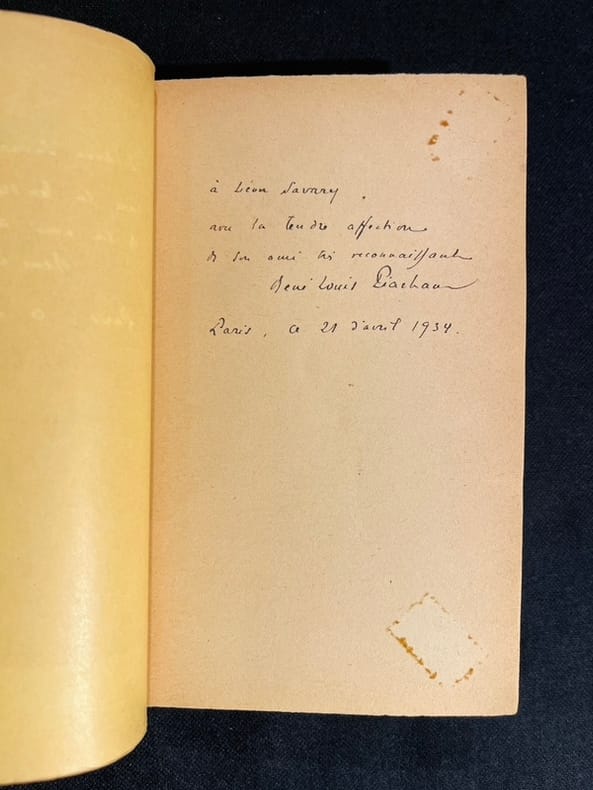 à Léon Savary
avec la tendre affection
de son ami très reconnaissant
René Louis Piachaud
Paris, ce 21 d'avril 1934.